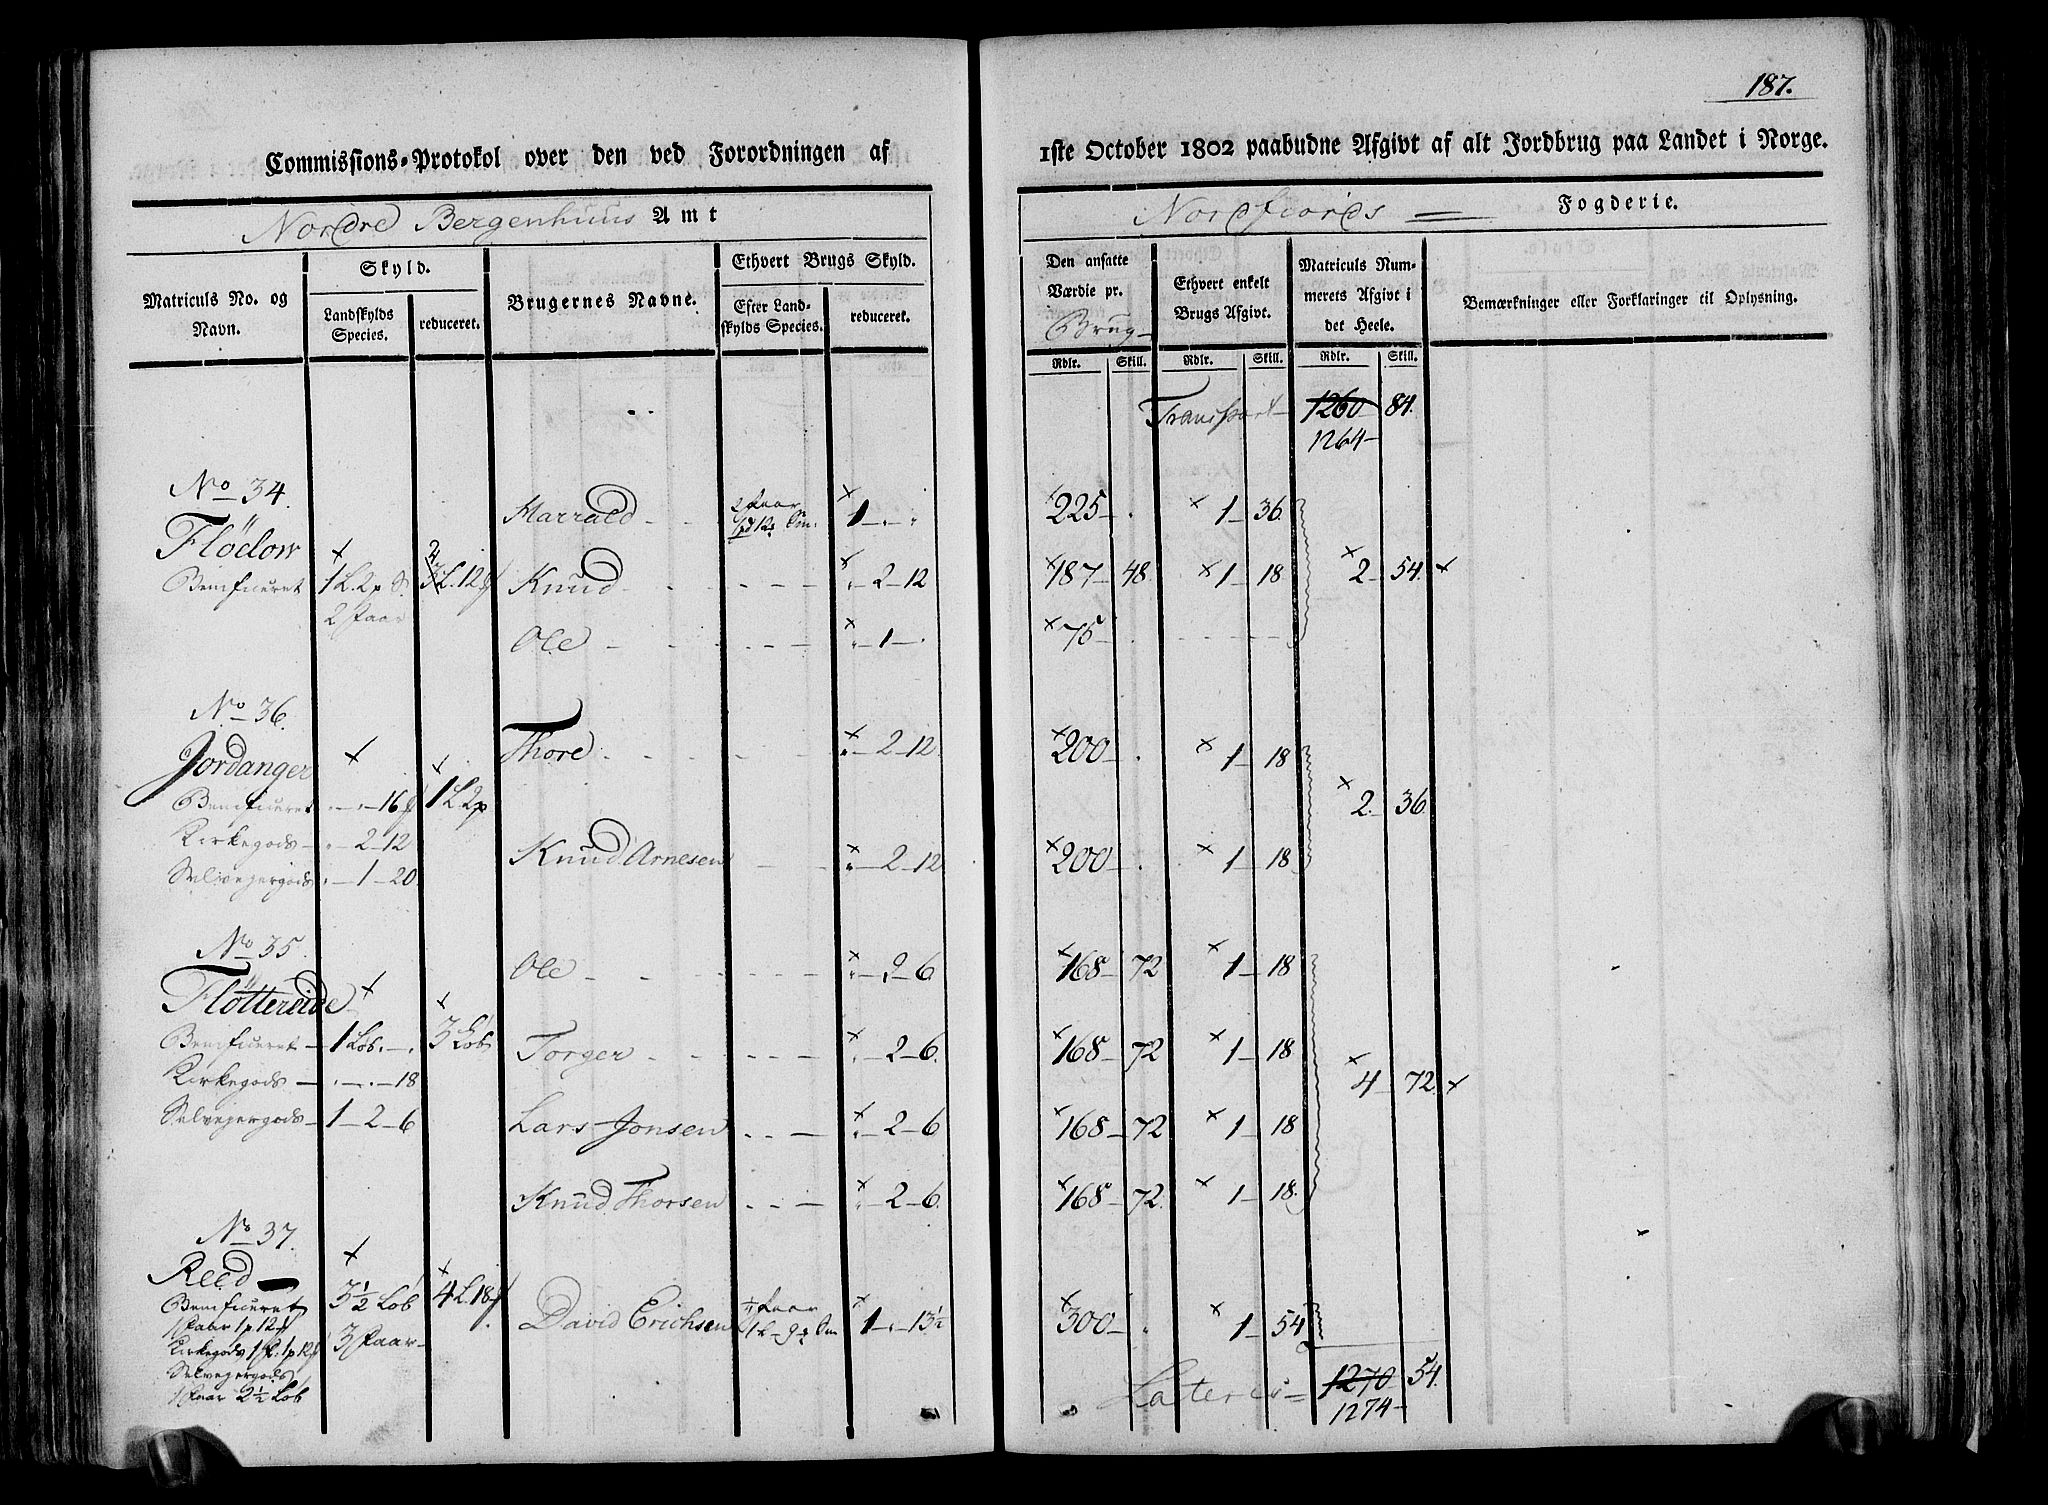 187.
Commissions-Protokol over den ved Forordningen af
1ste October 1802 paabudne Afgivt af alt Jordbrug paa Landet i Norge.
Nordre Bergenhuus Amt
Nordfiords Fogderie.
Matriculs No. og Navn.
Skyld.
Landskylds Species.
reduceret.
Brugernes Navne.
Ethvert Brugs Skyld.
Efter Landskylds Species.
reduceret.
Den ansatte Værdie pr. Brug
Ethvert enkelt Brugs Afgivt.
Matriculs Nummerets Afgivt i det Heele.
Bemærkninger eller Forklaringer til Oplysning.
Rdlr. Skill. Rdlr. Skill. Rdlr. Skill.
Transport 1260 84.
1264
No 34.
Flödow
Beneficeret 1 L. 2 p
2 Faar
L. 12
Harrald 2 Faar 1 225 1 36.
Knud 2 12 187 48. 1 18 2 54.
Ole 1 75
No 36.
Jordanger
Beneficeret 16 1 L. 2 p
Kirkegods 2 12
Selvejergods 1 20
Thore 2 12 200 1 18
2. 36
Knud Arnesen 2 12 200 1 18
No 35.
Flöttereide
Beneficeret 1 Löb. 3 Löb
Kirkegods 18
Selvejergods 1 2 6
Ole 2 6 168 72 1 18
Torger 2 6. 168 72 1 18
4 72.
Lars Jonsen 2 6 168 72 1 18
Knud Thorsen 2 6. 168 72. 1 18.
No 37.
Reed
Beneficeret 3½ Löb 4 L. 18
1 Faar 1 p 12
Kirkegods 1 1 p 12 3 Faar
Selvejergods
1 Faar 2½ Löb
David Erichsen Faar 1 13½ 300 1 54
Lateris 1270 54.
1274